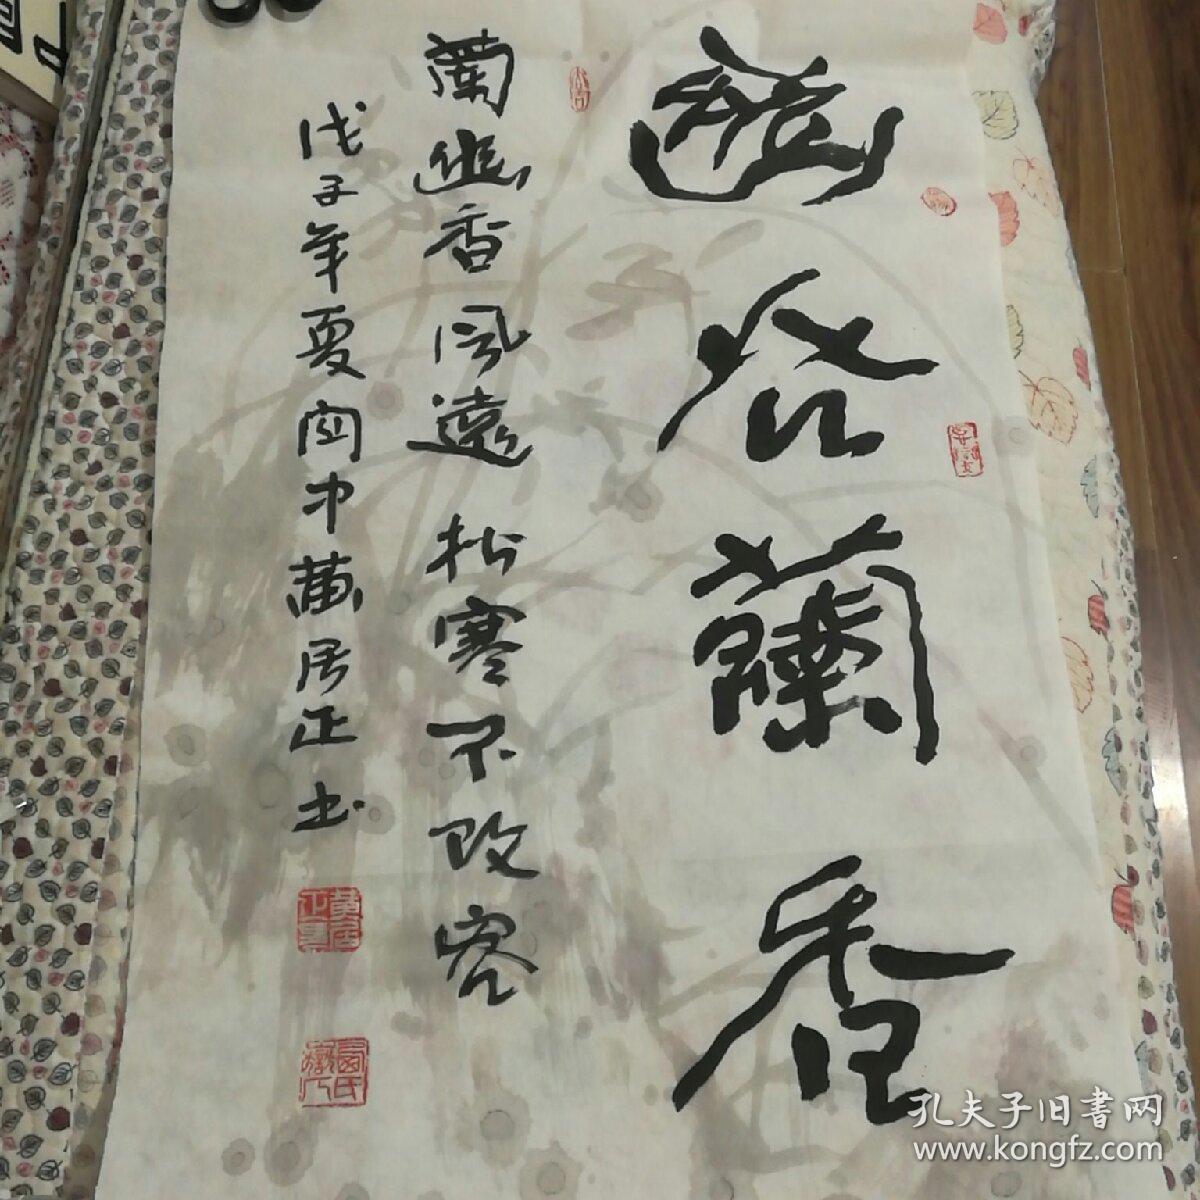 幽谷蘭香
蘭幽香風遠松寒不改容
戊子年夏闾中黄居正书
孔夫子旧書网
www.kongfz.com